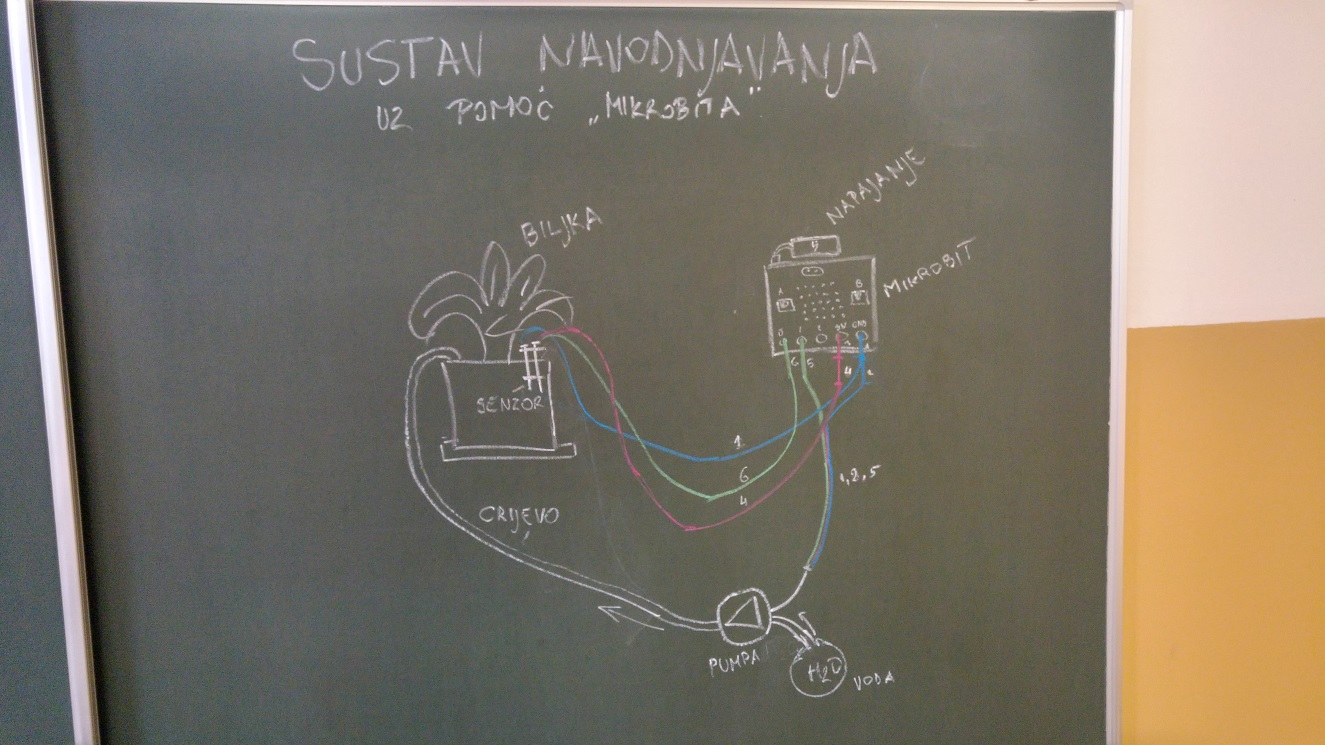 SUSTAV NAVODNJAVANJA
UZ POMOĆ „MIKROBITA"
NAPAJANJE
BILJKA
MIKROBIT
A
B
0 1 2 3V GND
6 5 4
SENZOR
1
6
4
1,2,5
CRIJEVO
PUMPA
H2O
VODA